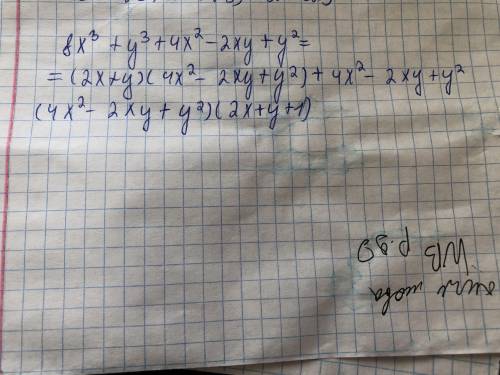 8x³ + y³ + 4x² - 2xy + y² =
= (2x+y)(4x² - 2xy + y²) + 4x² - 2xy + y²
(4x² - 2xy + y²)(2x+y+1)
мова
WB p.99